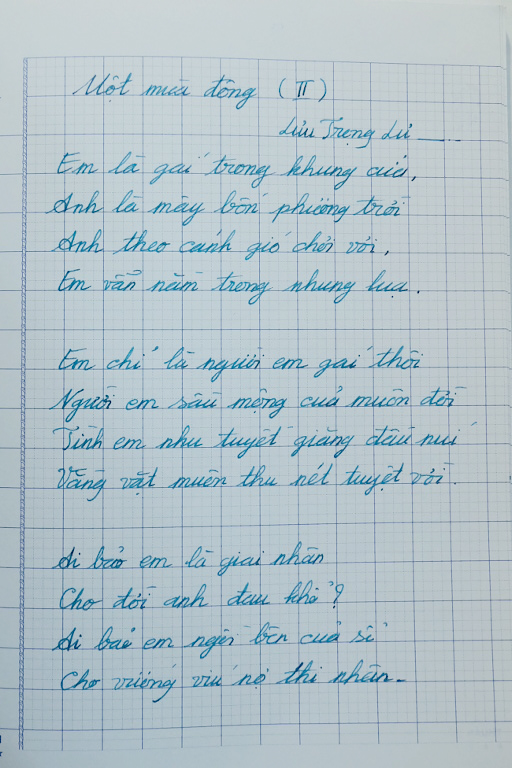 Một mùa đông (II)
Lưu Trọng Lư
Em là gái trong khung cửa,
Anh là mây bốn phương trời
Anh theo cánh gió chơi vơi,
Em vẫn nằm trong nhung lụa.
Em chỉ là người em gái thôi
Người em sầu mộng của muôn đời
Tình em như tuyết giăng đầu núi
Vằng vặc muôn thu nét tuyệt vời.
Ai bảo em là giai nhân
Cho đời anh đau khổ?
Ai bảo em ngồi bên cửa sổ
Cho vướng víu nợ thi nhân.